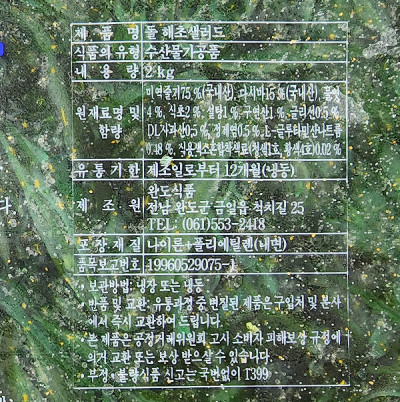 제 품 명 돌 해초샐러드
식품의 유형 수산물가공품
내 용 량 2kg
미역줄기75%(국내산), 다시마15%(국내산), 물엿
원재료명 및 4%, 식초2%, 설탕1%, 구연산1%, 글리신0.5%
함량 DL사과산0.5%, 정제염0.5%, L-글루타민산나트륨
0.48%, 식용색소혼합착색료(청색1호, 황색4호)0.02%
유 통 기 한 제조일로부터 12개월(냉동)
완도식품
제 조 원 전남 완도군 금일읍 척치길 25
TEL: (061)553-2418
포 장 재 질 나이론+폴리에틸렌(내면)
품목보고번호 19960529075-1
• 보관방법: 냉장 또는 냉동
• 반품 및 교환: 유통과정 중 변질된 제품은 구입처 및 본사
에서 즉시 교환하여 드립니다.
• 본 제품은 공정거래위원회 고시 소비자 피해보상 규정에
의거 교환 또는 보상 받으실 수 있습니다.
• 부정·불량식품 신고는 국번없이 1399
다